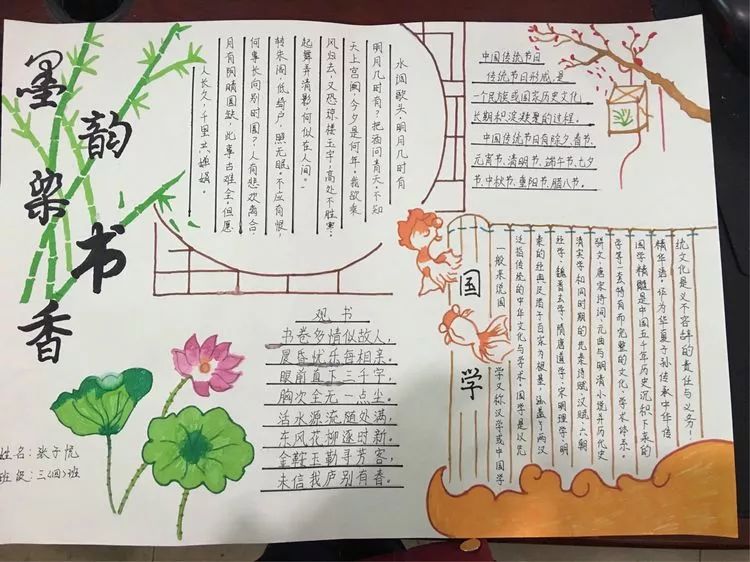 墨韵染书香
水调歌头·明月几时有
明月几时有？把酒问青天。不知
天上宫阙，今夕是何年。我欲乘
风归去，又恐琼楼玉宇，高处不胜寒。
起舞弄清影，何似在人间。
转朱阁，低绮户，照无眠。不应有恨，
何事长向别时圆？人有悲欢离合，
月有阴晴圆缺，此事古难全。但愿
人长久，千里共婵娟。
中国传统节日
传统节日形成，是
一个民族或国家历史文化
长期积淀凝聚的过程。
中国传统节日有除夕、春节、
元宵节、清明节、端午节、七夕
节、中秋节、重阳节、腊八节。
观书
书卷多情似故人，
晨昏忧乐每相亲。
眼前直下三千字，
胸次全无一点尘。
活水源流随处满，
东风花柳逐时新。
金鞍玉勒寻芳客，
未信我庐别有春。
国学
一般来说国学又称汉学或中国学
泛指传统的中华文化与学术。国学是以先
秦的经典及诸子百家为根基，涵盖了两汉
经学、魏晋玄学、隋唐道学、宋明理学、明
清实学和同时期的先秦诗赋、汉赋、六朝
研文、唐宋诗词、元曲与明清小说并历代史
学等一套特有而完整的文化、学术体系。
国学精髓是中国五千年历史沉积下来的
精华，作为华夏子孙传承中华传
统文化是义不容辞的责任与义务！
姓名：张子悦
班级：三（四）班